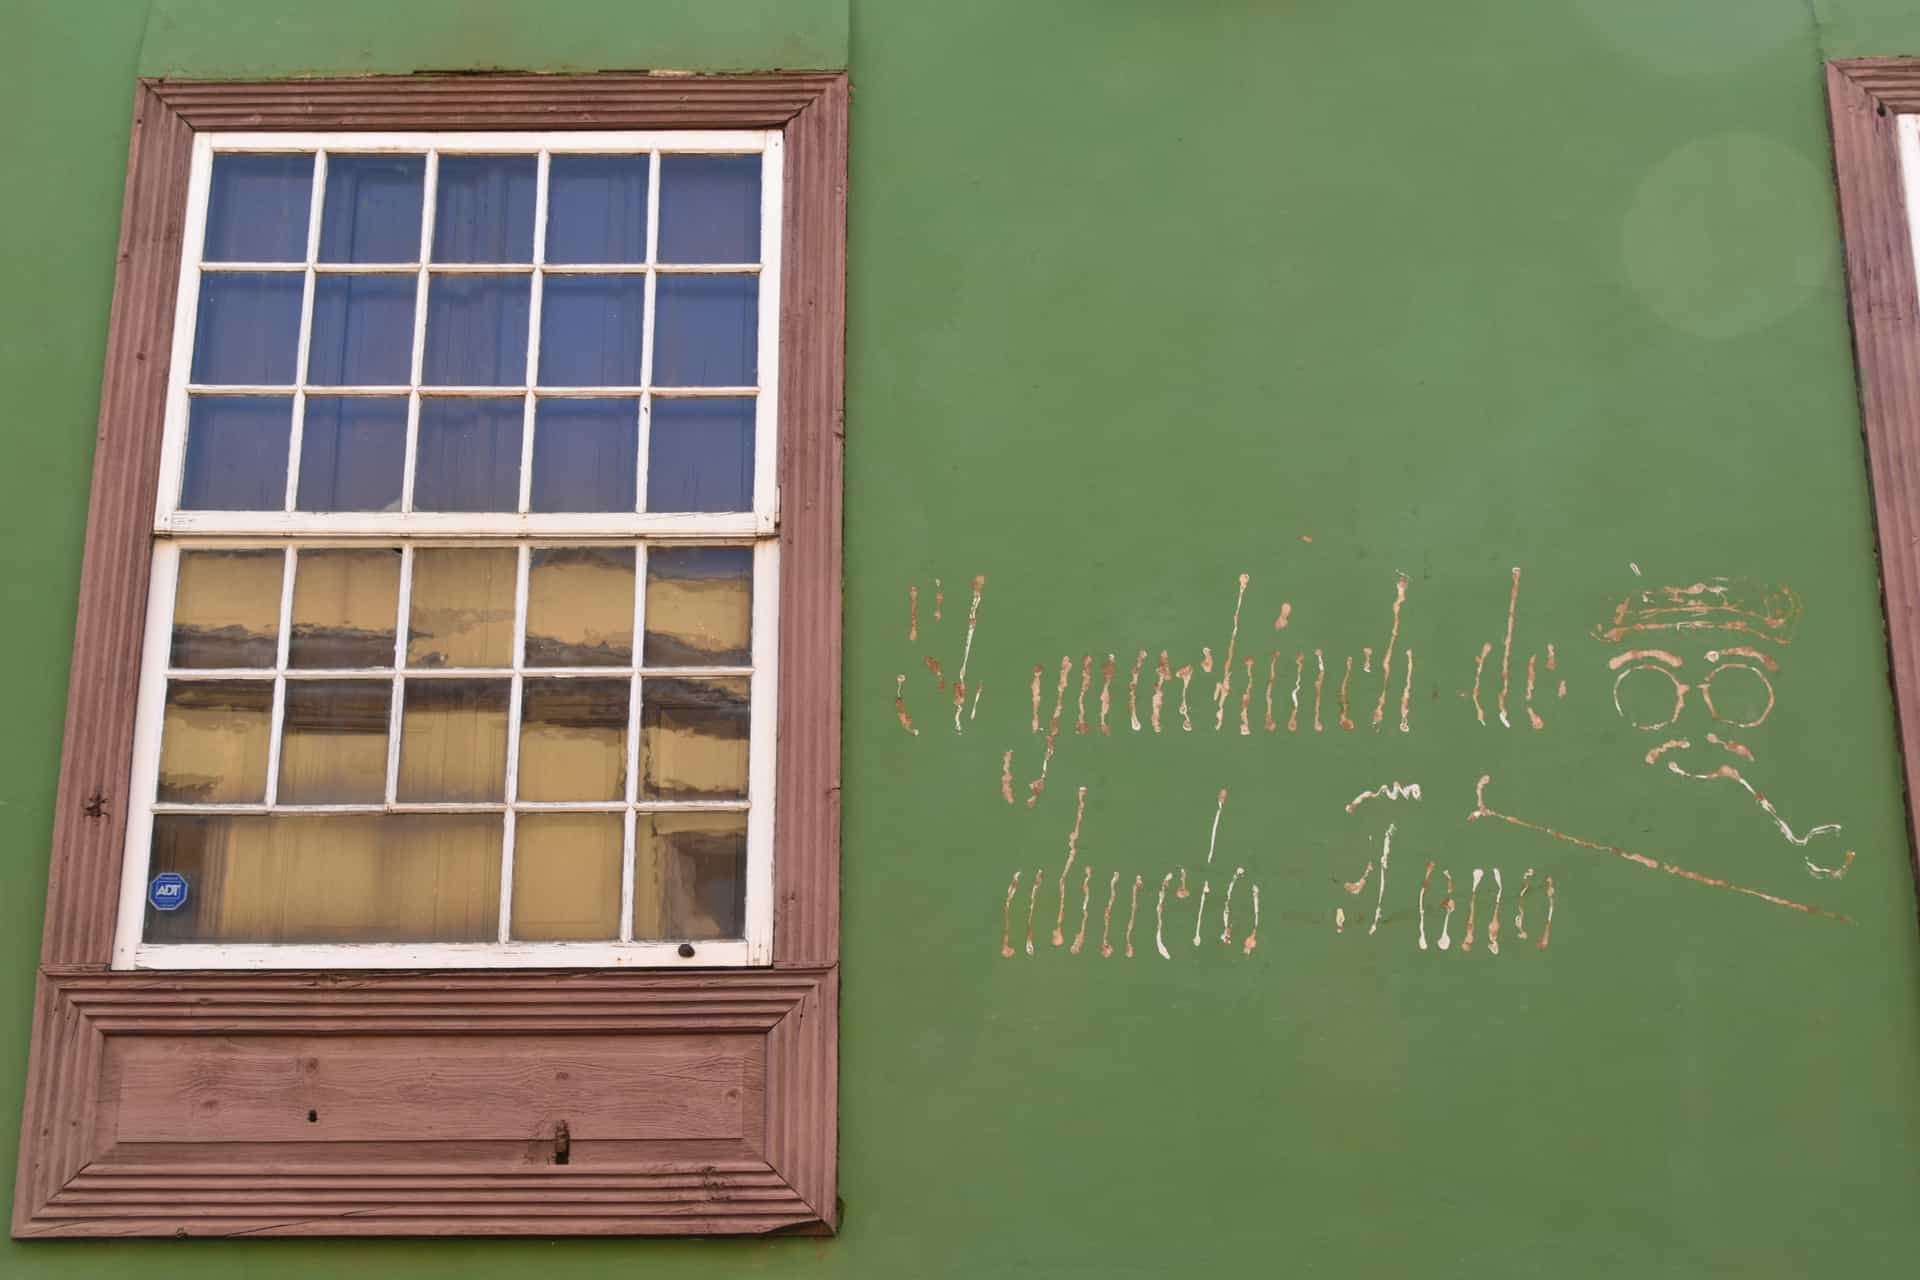 ADT
El guachinch de
abuelo Tono